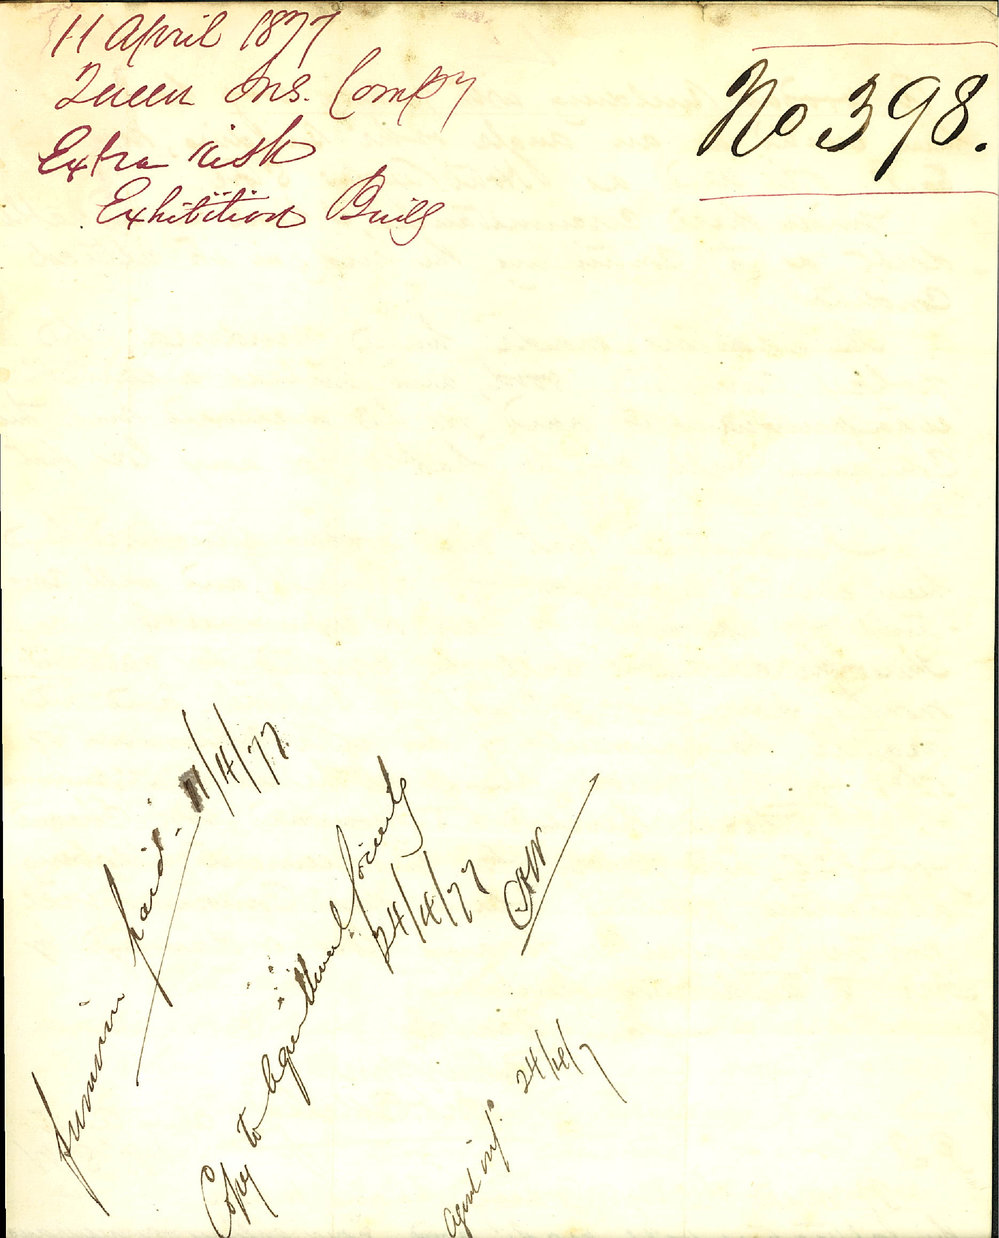 11 April 1877
Queen Ins. Compy
Extra risk
Exhibition Buildg
No 398.
premium paid - 11/4/77
Copy to Agricultural Society
24/4/77
24/4/7